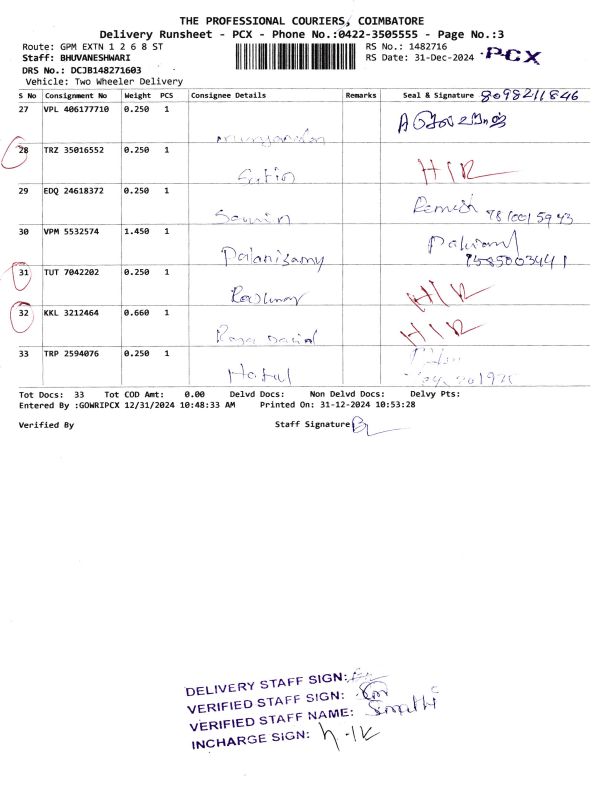 THE PROFESSIONAL COURIERS, COIMBATORE
Delivery Runsheet - PCX - Phone No.:0422-3505555 - Page No.:3
Route: GPM EXTN 1 2 6 8 ST RS No.: 1482716
Staff: BHUVANESHWARI RS Date: 31-Dec-2024 PCX
DRS No.: DCJB148271603
Vehicle: Two Wheeler Delivery
S No Consignment No Weight PCS Consignee Details Remarks Seal & Signature 8098211846
27 VPL 406177710 0.250 1
28 TRZ 35016552 0.250 1 H/R
29 EDQ 24618372 0.250 1
30 VPM 5532574 1.450 1 Palanisamy
31 TUT 7042202 0.250 1 H/R
32 KKL 3212464 0.660 1 H/R
33 TRP 2594076 0.250 1
Tot Docs: 33 Tot COD Amt: 0.00 Delvd Docs: Non Delvd Docs: Delvy Pts:
Entered By :GOWRIPCX 12/31/2024 10:48:33 AM Printed On: 31-12-2024 10:53:28
Verified By Staff Signature
DELIVERY STAFF SIGN:
VERIFIED STAFF SIGN:
VERIFIED STAFF NAME:
INCHARGE SIGN: